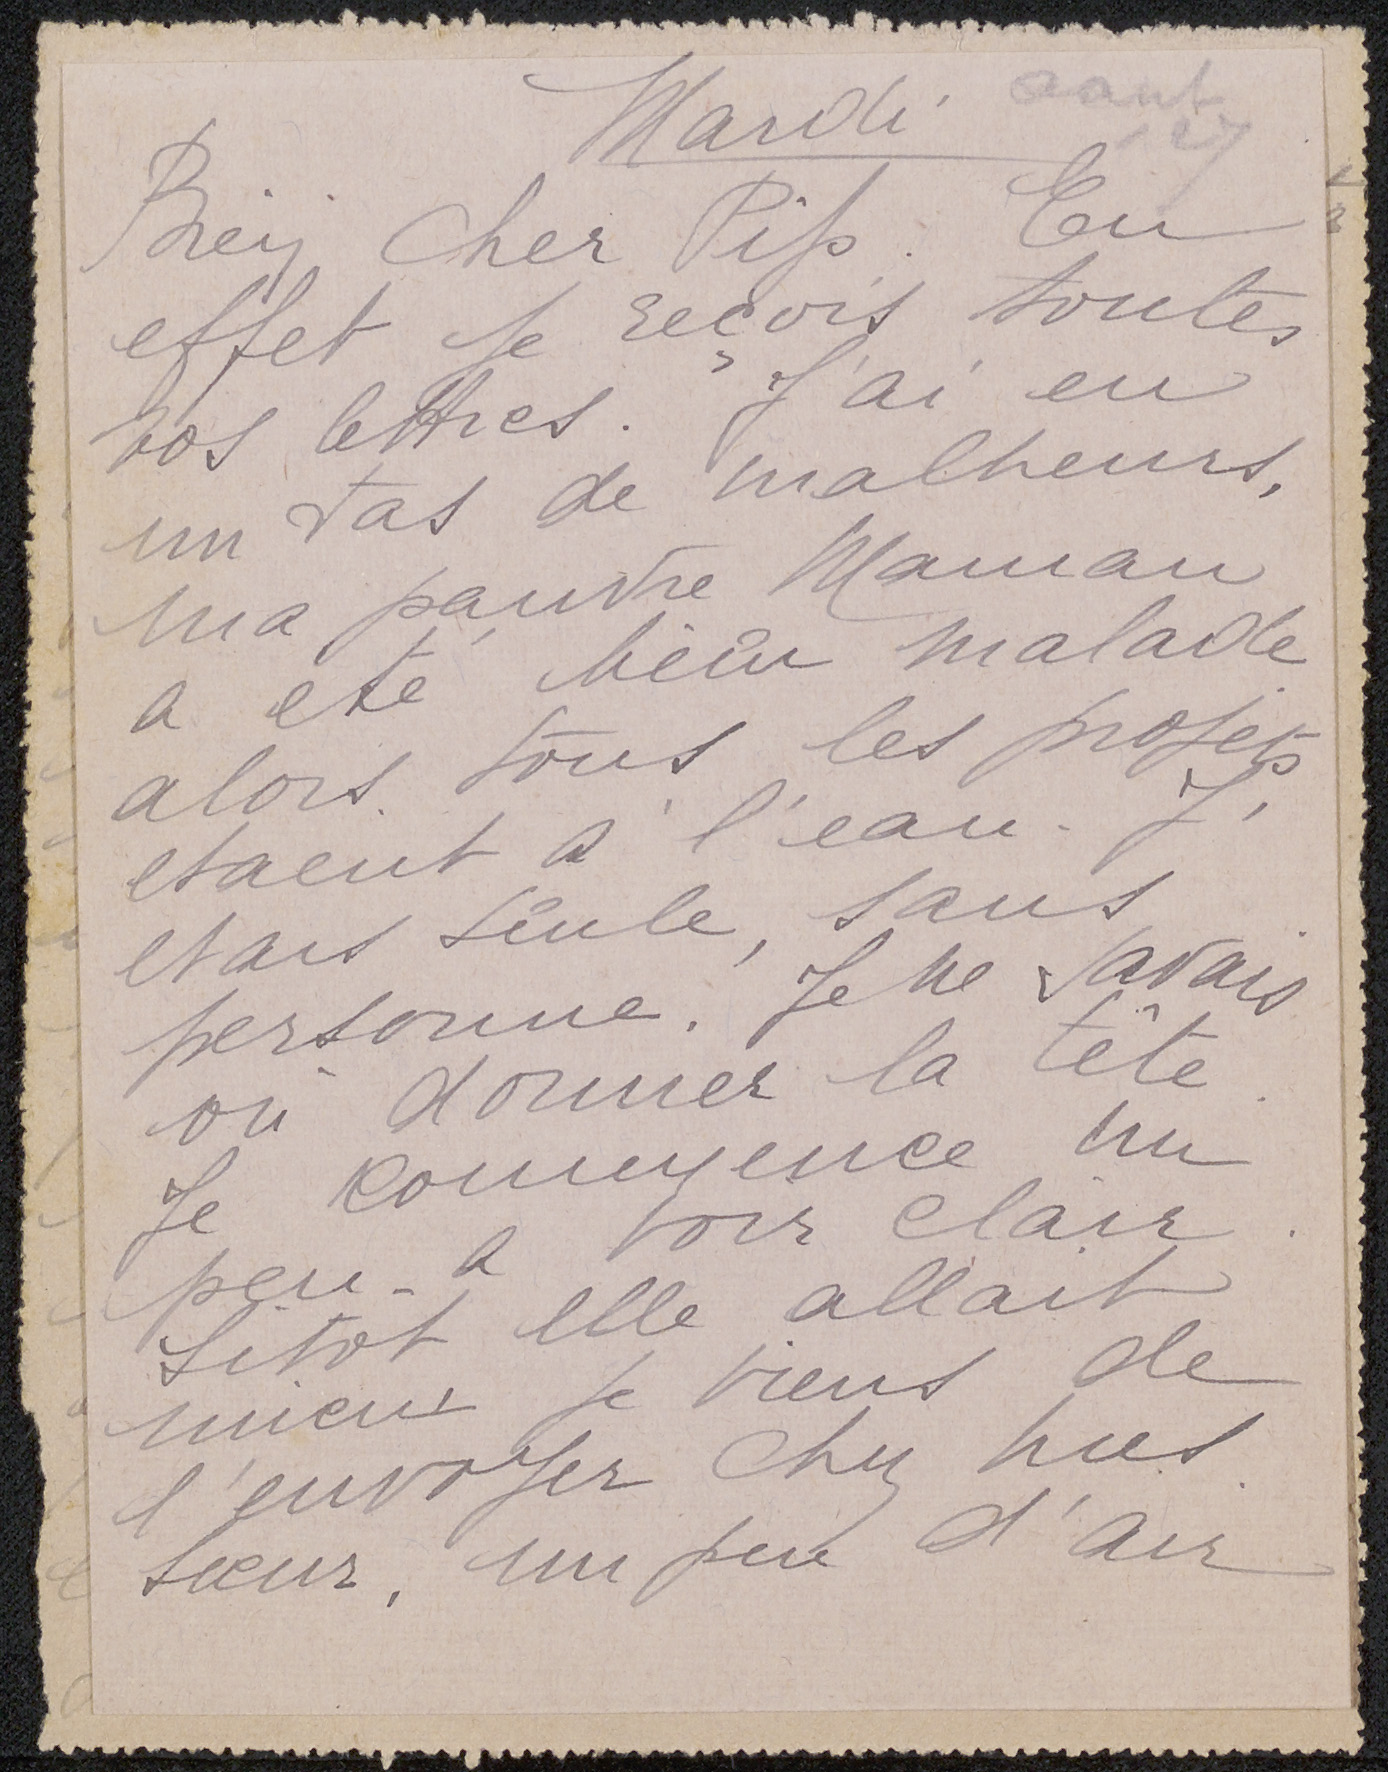 Mardi aout
27
Bien cher Pip. En
effet je reçois toutes
vos lettres. J'ai eu
un tas de malheurs,
ma pauvre Maman
a eté bien malade
alors tous les projets
etaent à l'eau. J'
etais seule, sans
personne. Je ne savais
où donner la tête.
Je commence un
peu a voir clair.
Sitot elle allait
mieux je viens de
l'envoyer chez mes
sœur, un peu d'air